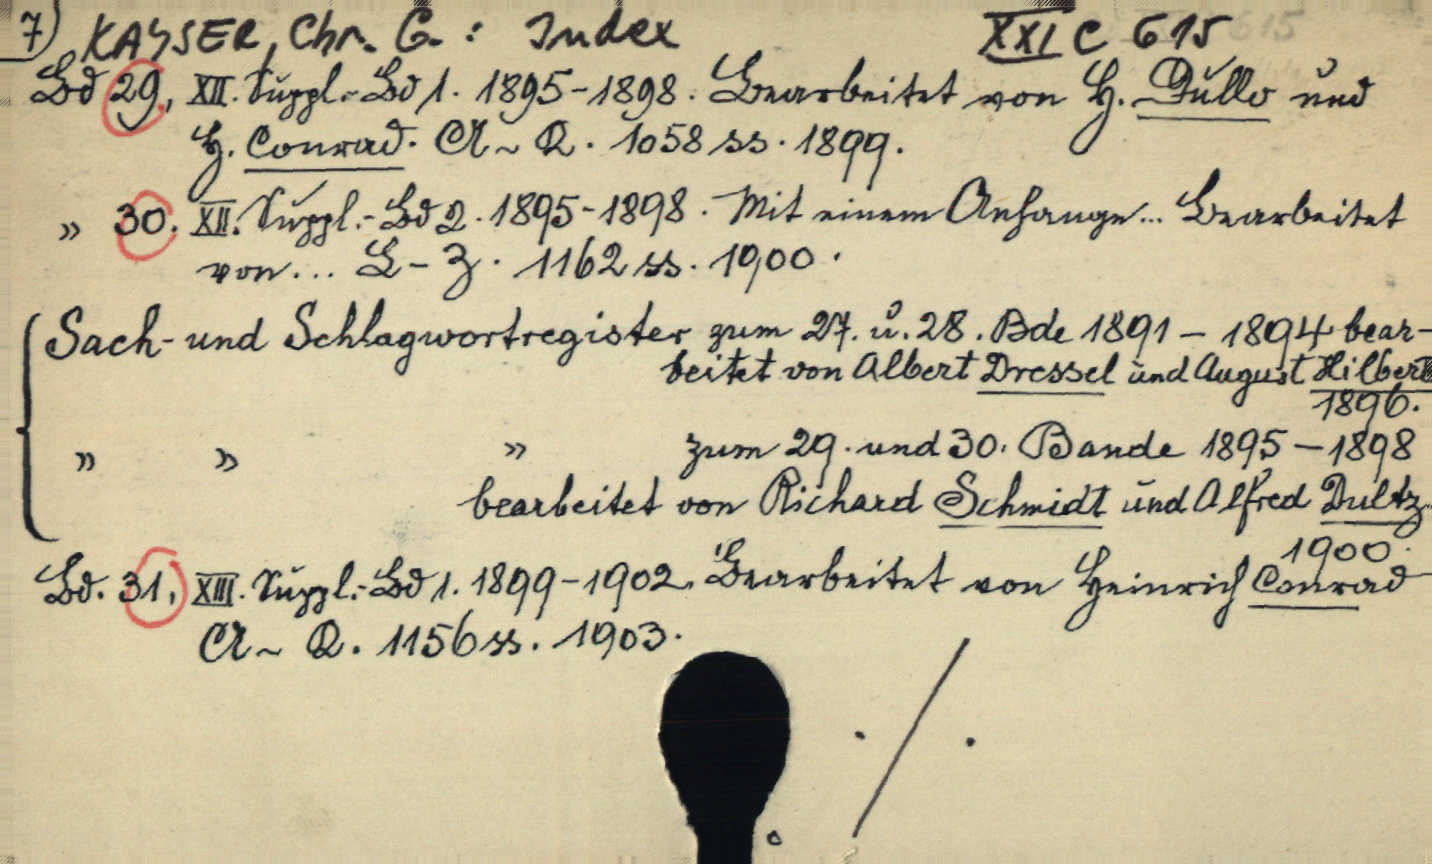 7) KAYSER, Chr. G. : Index XXI C 615
Bd 29, XII. Suppl.-Bd 1. 1895-1898. Bearbeitet von H. Dullo und
H. Conrad. A ~ K. 1058 ss. 1899.
» 30. XII. Suppl.-Bd 2. 1895-1898. Mit einem Anhange... Bearbeitet
von... L - Z. 1162 ss. 1900.
Sach- und Schlagwortregister zum 27. u. 28. Bde 1891 - 1894 bear-
beitet von Albert Dressel und August Hilbert
1896.
» » » zum 29. und 30. Bande 1895 - 1898
bearbeitet von Richard Schmidt und Alfred Dultz
1900.
Bd. 31, XIII. Suppl.-Bd 1. 1899-1902. Bearbeitet von Heinrich Conrad
A ~ K. 1156 ss. 1903.
./.